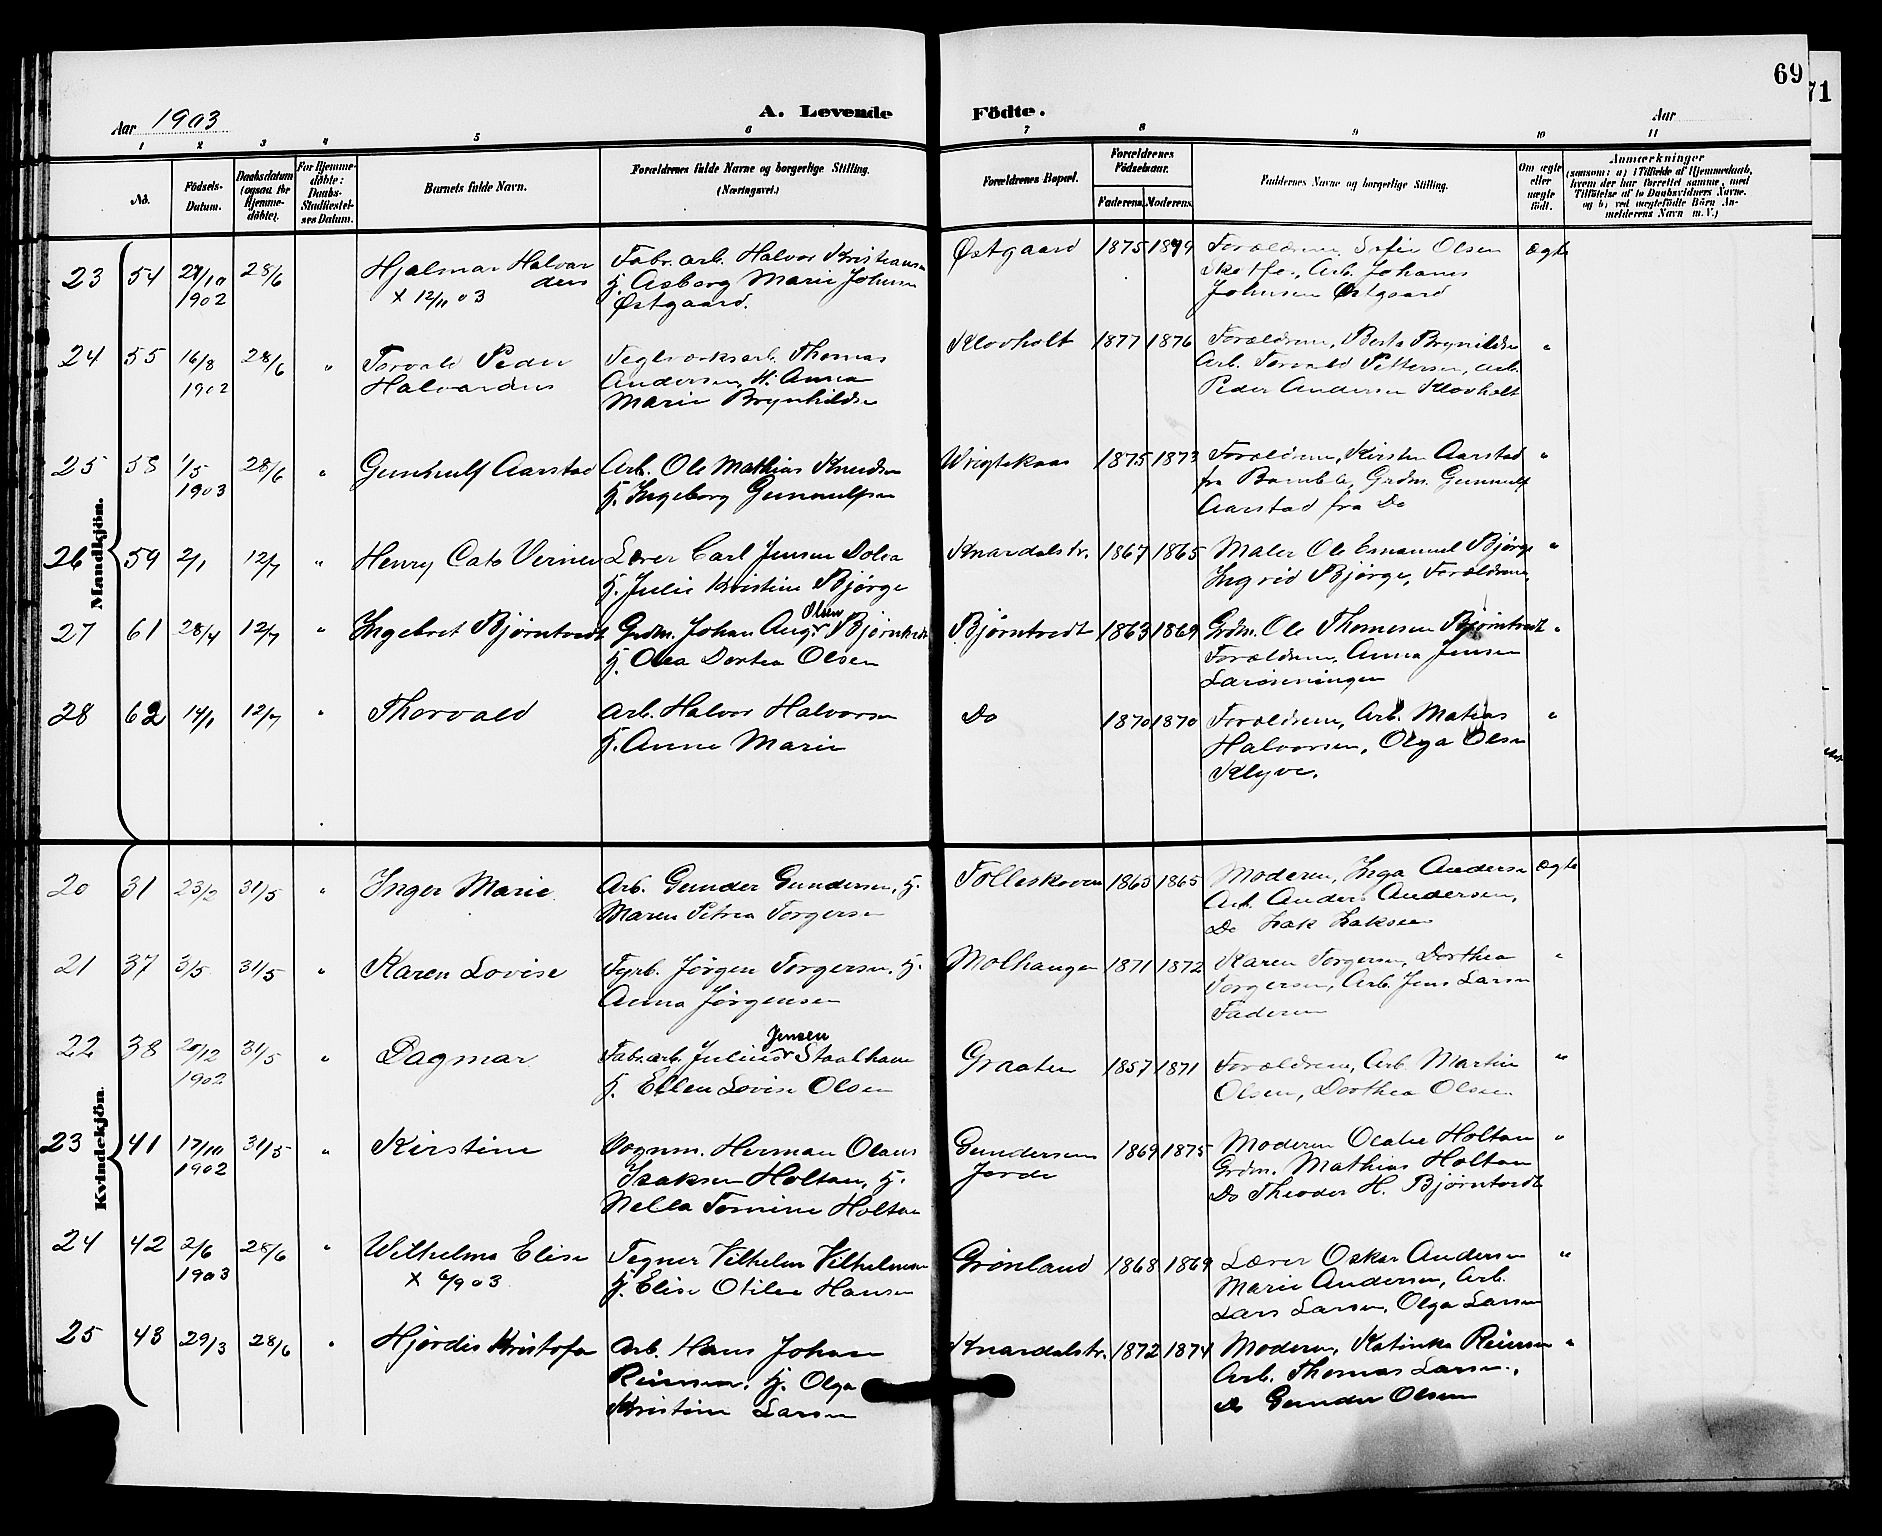 69
71
Aar 1903
A. Levende Födte.
Aar
1 2 3 4 5 6 7 8 9 10 11
No.
Födsels-
Datum.
Daabsdatum
(ogsaa for
Hjemme-
döbte).
For Hjemme-
döbte:
Daabs-
Stadfæstel-
ses Datum.
Barnets fulde Navn.
Forældrenes fulde Navne og borgerlige Stilling.
(Næringsvei.)
Forældrenes Bopæl.
Forældrenes
Födselsaar.
Faderens. Moderens.
Faddernes Navne og borgerlige Stilling.
Om ægte
eller
uægte
födt.
Anmærkninger
(saasom: a) i Tilfælde af Hjemmedaab,
hvem der har forrettet samme, med
Tilføielse af to Daabsvidners Navne,
og b) ved uægtefödte Börn An-
melderens Navn m. V.)
Mandkjön.
23 54 27/10 28/6 Hjalmar Halvar Fabr.arb. Halvor Kristiansen Østgaard 1875 1879 Forældrene, Sofie Olsen ægte
1902 dens H. Asborg Marie Johnsen Skotfos, Arb. Johanes
X 12/11 03 Østgaard. Johnsen Østgaard
24 55 16/8 28/6 " Torvald Peder Teglværksarb. Thomas Klovholt 1877 1876 Forældrene, Berte Brynildsen "
1902 Halvardus Andersen, H. Anna Arb. Torvald Pettersen, Arb.
Marie Brynhildsen Peder Andersen Klovholt
25 58 1/5 28/6 " Gunnulf Aarstad Arb. Ole Mathias Knudsen Wrigtskaas 1875 1873 Forældrene, Kirsten Aarstad "
1903 H. Ingeborg Gunnulfsen fra Bamble, Grdm. Gunnulf
Aarstad fra Do
26 59 2/1 12/7 " Henry Cato Verner Lærer Carl Jensen Dolva Knardalstr. 1867 1865 Maler Ole Emanuel Bjørge "
H. Julie Kristine Bjørge Ingrid Bjørge, Forældrene,
27 61 28/4 12/7 " Ingebret Bjørntvedt Grdm. Johan Aug. Olsen Bjørntvedt Bjørntvedt 1863 1869 Grdm. Ole Thomesen Bjørntvedt "
H. Olea Dortea Olsen Forældrene, Anna Jensen
28 62 14/1 12/7 " Thorvald Arb. Halvor Halvorsen Do 1870 1870 Forældrene, Arb. Matias "
H. Anne Marie Halvorsen, Olga Olsen
Klyve.
Kvindekjön.
20 31 23/2 31/5 " Inger Marie Arb. Gunder Gundersen, H. Folleskoven 1865 1865 Moderen, Inga Andersen ægte
Maren Petrea Torgersen Arb. Anders Andersen,
Do Isak Isaksen
21 37 3/5 31/5 " Karen Lovise Fyrb. Jørgen Torgersen, H. Molhaugen 1871 1872 Karen Torgersen, Dorthea "
Anna Jørgensen Torgersen, Arb. Jens Larsen
Faderen
22 38 20/12 31/5 " Dagmar Fabr.arb. Julius Jensen Staalhane Graaten 1857 1871 Forældrene, Arb. Martin "
1902 H. Ellen Lovise Olsen Olsen, Dorthea Olsen
23 41 17/10 31/5 " Kirstine Vognm. Herman Olaus Gundersens 1869 1875 Moderen Oleane Holtan "
1902 Isaksen Holtan, H. Jorde Grdm. Mathias Holtan
Nella Tomine Holtan Do Theodor H. Bjørntvedt
24 42 2/6 28/6 " Wilhelma Elise Tegner Vilhelm Vilhelmsen Grønland 1868 1869 Lærer Oskar Andersen "
1903 X 6/9 03 H. Elise Otilie Hansen Marie Andersen, Arb.
Lars Larsen, Olga Larsen
25 43 29/3 28/6 " Hjørdis Kristofa Arb. Hans Johan Knardalstr. 1872 1874 Moderen, Katinka Reiersen "
Reiersen, H. Olga Arb. Thomas Larsen,
Kristine Larsen Do Gunder Olsen